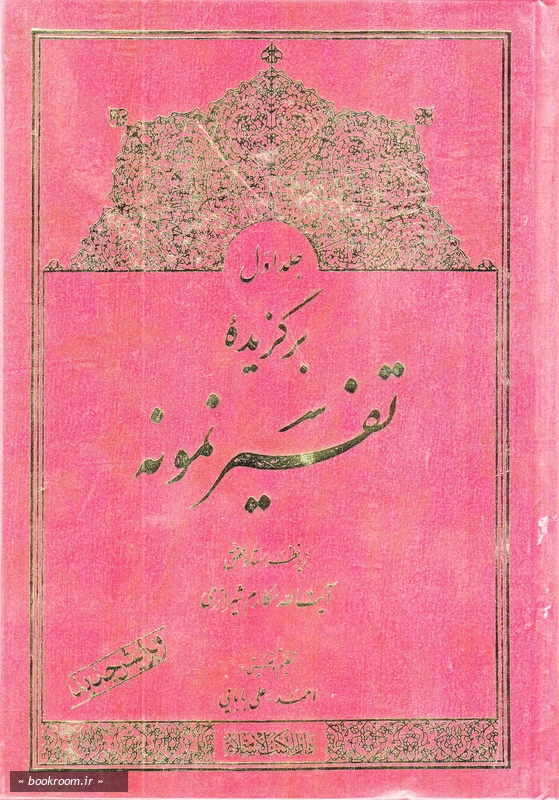 جلد اول
برگزیدهٔ
تفسیر نمونه
زیر نظر استاد محقق
آیت الله مکارم شیرازی
ویرایش جدید
تنظیم و تحقیق:
احمد علی بابایی
دارالکتب الاسلامیة
« bookroom.ir »